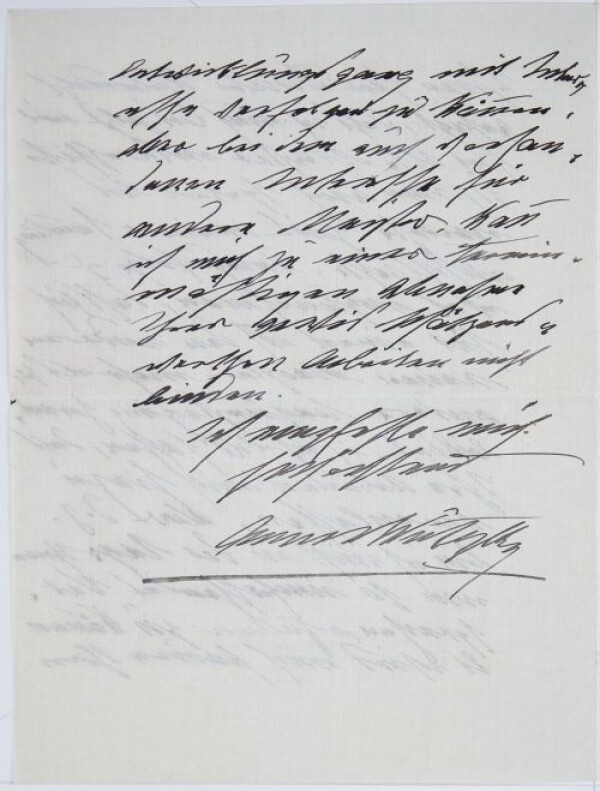 Entwicklungsgang mit Inter-
esse verfolgen zu können,
aber bei dem auch vorhan-
denen Interesse für
andere Meister, kann
ich mich zu einer termin-
mässigen Abnahme
Ihrer gewiß schätzens-
werthen Arbeiten nicht
binden.
Ich empfehle mich
hochachtend